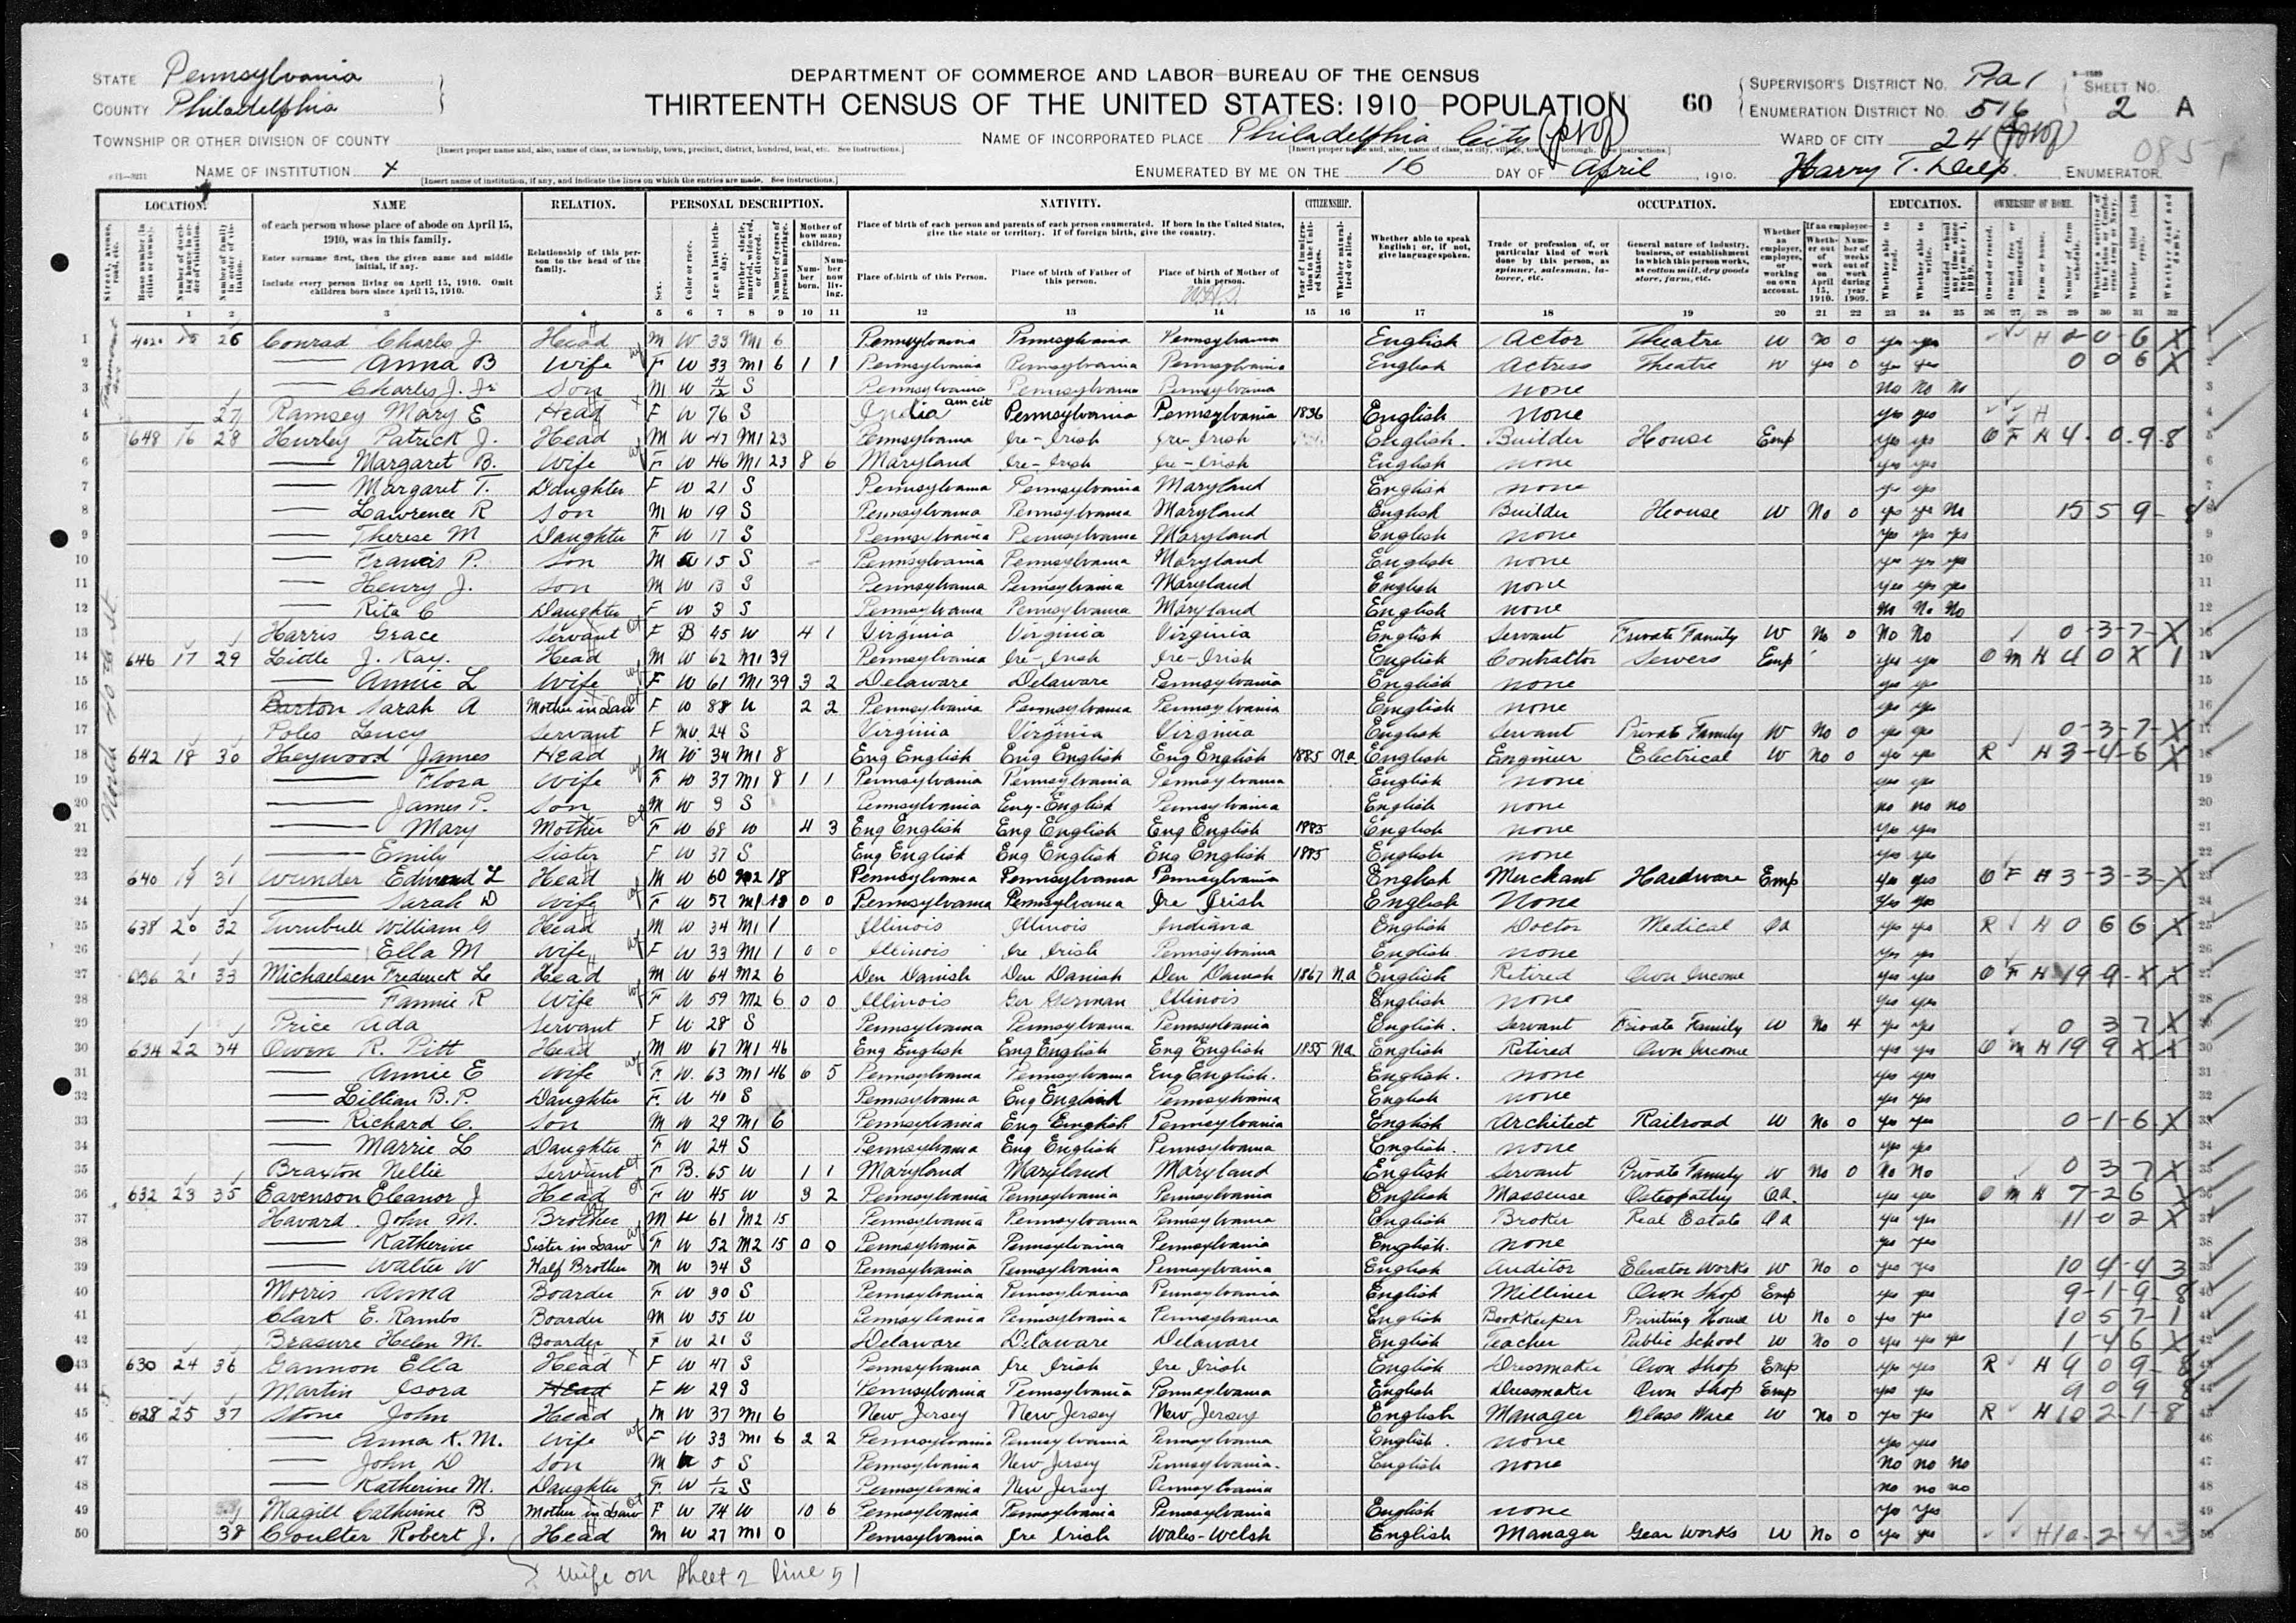 STATE Pennsylvania
COUNTY Philadelphia
TOWNSHIP OR OTHER DIVISION OF COUNTY
[Insert proper name and, also, name of class, as township, town, precinct, district, hundred, beat, etc. See instructions.]
NAME OF INSTITUTION X
[Insert name of institution, if any, and indicate the lines on which the entries are made. See instructions.]
DEPARTMENT OF COMMERCE AND LABOR—BUREAU OF THE CENSUS
THIRTEENTH CENSUS OF THE UNITED STATES: 1910—POPULATION
60
NAME OF INCORPORATED PLACE Philadelphia City
ENUMERATED BY ME ON THE 16 DAY OF April, 1910.
SUPERVISOR'S DISTRICT NO. Pa 1
ENUMERATION DISTRICT NO. 516
SHEET NO. 2 A
WARD OF CITY 24
Harry T. Delp, ENUMERATOR.
LOCATION. NAME RELATION. PERSONAL DESCRIPTION. NATIVITY. CITIZENSHIP. OCCUPATION. EDUCATION. OWNERSHIP OF HOME.
of each person whose place of abode on April 15, 1910, was in this family.
Enter surname first, then the given name and middle initial, if any.
Include every person living on April 15, 1910. Omit children born since April 15, 1910.
Relationship of this person to the head of the family.
Mother of how many children.
Place of birth of each person and parents of each person enumerated. If born in the United States, give the state or territory. If of foreign birth, give the country.
Place of birth of this Person. Place of birth of Father of this person. Place of birth of Mother of this person.
Whether able to speak English; or, if not, give language spoken.
Trade or profession of, or particular kind of work done by this person, as spinner, salesman, laborer, etc.
General nature of industry, business, or establishment in which this person works, as cotton mill, dry goods store, farm, etc.
1 2 3 4 5 6 7 8 9 10 11 12 13 14 15 16 17 18 19 20 21 22 23 24 25 26 27 28 29 30 31 32
North 40th St
1 15 26 Conrad Charles J Head M W 33 M1 6 Pennsylvania Pennsylvania Pennsylvania English Actor Theatre W No 0 yes yes H
2 — Anna B Wife F W 33 M1 6 1 1 Pennsylvania Pennsylvania Pennsylvania English Actress Theatre W yes 0 yes yes 0 0 6 X
3 — Charles J. Jr Son M W 4/12 S Pennsylvania Pennsylvania Pennsylvania none No No No
4 27 Ramsey Mary E Head F W 76 S India am cit Pennsylvania Pennsylvania 1836 English none yes yes H
5 648 16 28 Hurley Patrick J. Head M W 47 M1 23 Pennsylvania Ire-Irish Ire-Irish English Builder House Emp yes yes O F H 4 0 9 8
6 — Margaret B. Wife F W 46 M1 23 8 6 Maryland Ire-Irish Ire-Irish English none yes yes
7 — Margaret T. Daughter F W 21 S Pennsylvania Pennsylvania Maryland English none yes yes
8 — Lawrence R Son M W 19 S Pennsylvania Pennsylvania Maryland English Builder House W No 0 yes yes No 15 5 9
9 — Therese M Daughter F W 17 S Pennsylvania Pennsylvania Maryland English none yes yes yes
10 — Francis P. Son M W 15 S Pennsylvania Pennsylvania Maryland English none yes yes yes
11 — Henry J. Son M W 13 S Pennsylvania Pennsylvania Maryland English none yes yes yes
12 — Rita C Daughter F W 3 S Pennsylvania Pennsylvania Maryland English none No No No
13 Harris Grace Servant F B 45 W 4 1 Virginia Virginia Virginia English Servant Private Family W No 0 No No 0-3-7-X
14 646 17 29 Little J. Kay. Head M W 62 M1 39 Pennsylvania Ire-Irish Ire-Irish English Contractor Sewers Emp yes yes O M H 4 0 X 1
15 — Annie L Wife F W 61 M1 39 3 2 Delaware Delaware Pennsylvania English none yes yes
16 Barton Sarah A Mother in Law F W 88 W 2 2 Pennsylvania Pennsylvania Pennsylvania English none yes yes
17 Poles Lucy Servant F Mu 24 S Virginia Virginia Virginia English Servant Private Family W No 0 yes yes 0-3-7-X
18 642 18 30 Heywood James Head M W 34 M1 8 Eng English Eng English Eng English 1885 Na English Engineer Electrical W No 0 yes yes R H 3-4-6 X
19 — Flora Wife F W 37 M1 8 1 1 Pennsylvania Pennsylvania Pennsylvania English none yes yes
20 — James P. Son M W 3 S Pennsylvania Eng-English Pennsylvania English none no no no
21 — Mary Mother F W 68 W 4 3 Eng English Eng English Eng English 1885 English none yes yes
22 — Emily Sister F W 37 S Eng English Eng English Eng English 1885 English none yes yes
23 640 19 31 Wunder Edward L Head M W 60 M2 18 Pennsylvania Pennsylvania Pennsylvania English Merchant Hardware Emp yes yes O F H 3-3-3-X
24 — Sarah D Wife F W 57 M1 18 0 0 Pennsylvania Pennsylvania Ire Irish English None yes yes
25 638 20 32 Turnbull William G Head M W 34 M1 1 Illinois Illinois Indiana English Doctor Medical Oa yes yes R H 0 6 6 X
26 — Ella M Wife F W 33 M1 1 0 0 Illinois Ire Irish Pennsylvania English none yes yes
27 636 21 33 Michaelsen Frederick Le Head M W 64 M2 6 Den Danish Den Danish Den Danish 1867 Na English Retired Own Income yes yes O F H 19 9 X X
28 — Fannie R Wife F W 59 M2 6 0 0 Illinois Ger German Illinois English none yes yes
29 Price Ada Servant F W 28 S Pennsylvania Pennsylvania Pennsylvania English Servant Private Family W No 4 yes yes 0 3 7 X
30 634 22 34 Owen R. Pitt Head M W 67 M1 46 Eng English Eng English Eng English 1855 Na English Retired Own Income yes yes O M H 19 9 X X
31 — Annie E Wife F W. 63 M1 46 6 5 Pennsylvania Pennsylvania Eng English. English. none yes yes
32 — Lillian B. P. Daughter F. W 40 S Pennsylvania Eng English Pennsylvania English none yes yes
33 — Richard C. Son M W 29 M1 6 Pennsylvania Eng English Pennsylvania English Architect Railroad W No 0 yes yes 0-1-6 X
34 — Marrie L Daughter F W 24 S Pennsylvania Eng English Pennsylvania English. none yes yes
35 Braxton Nellie Servant F B. 65 W 1 1 Maryland Maryland Maryland English Servant Private Family W No 0 No No 0 3 7 X
36 632 23 35 Eavenson Eleanor J Head F W 45 W 3 2 Pennsylvania Pennsylvania Pennsylvania English Masseuse Osteopathy Oa. yes yes O M H 7-26
37 Havard. John M. Brother M W 61 M2 15 Pennsylvania Pennsylvania Pennsylvania English Broker Real Estate Oa yes yes 11 0 2 X
38 — Katherine Sister in Law F W 52 M2 15 0 0 Pennsylvania Pennsylvania Pennsylvania English. none yes yes
39 — Walter W Half Brother M W 34 S Pennsylvania Pennsylvania Pennsylvania English Auditor Elevator Works W No 0 yes yes 10 4-4 3
40 Morris Anna Boarder F W 30 S Pennsylvania Pennsylvania Pennsylvania English Milliner Own Shop Emp yes yes 9-1-9-8
41 Clark E. Rambo Boarder M W 55 W Pennsylvania Pennsylvania Pennsylvania English Bookkeeper Printing House W No 0 yes yes 10 5 7-1
42 Brasure Helen M. Boarder F W 21 S Delaware Delaware Delaware English Teacher Public School W No 0 yes yes yes 1-4 6 X
43 630 24 36 Gannon Ella Head F W 47 S Pennsylvania Ire Irish Ire Irish English Dressmaker Own Shop Emp yes yes R H 9 0 9-8
44 Martin Isora Head F W 29 S Pennsylvania Pennsylvania Pennsylvania English Dressmaker Own Shop Emp yes yes 9 0 9 8
45 628 25 37 Stone John Head M W 37 M1 6 New Jersey New Jersey New Jersey English Manager Glass Ware W No 0 yes yes R H 10 2-1-8
46 — Anna K. M. Wife F W 33 M1 6 2 2 Pennsylvania Pennsylvania Pennsylvania English. none yes yes
47 — John D Son M W 5 S Pennsylvania New Jersey Pennsylvania. English none No no no
48 — Katherine M. Daughter F. W 1/12 S Pennsylvania New Jersey Pennsylvania no no no
49 Magill Catherine B Mother in Law F W 74 W 10 6 Pennsylvania Pennsylvania Pennsylvania English none yes yes
50 38 Coulter Robert J. Head M W 27 M1 0 Pennsylvania Ire Irish Wales-Welsh English Manager Gear Works W No 0 yes yes H 10-2-4-3
X wife on sheet 2 line 51